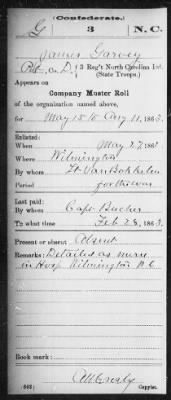 (Confederate.)
G 3 N.C.
James Garvey
Pvt, Co. D, 3 Reg't North Carolina Inf.
(State Troops.)
Appears on
Company Muster Roll
of the organization named above,
for May 15 to Aug 11, 1863.
Enlisted:
When May 27, 186
Where Wilmington
By whom Lt. Van Bokkelen
Period for the war
Last paid:
By whom Capt
To what time Feb 28, 1863.
Present or absent Absent
Remarks: Detailed as nurse
in Hosp Wilmington N.C
Book mark:
(642) Copyist.